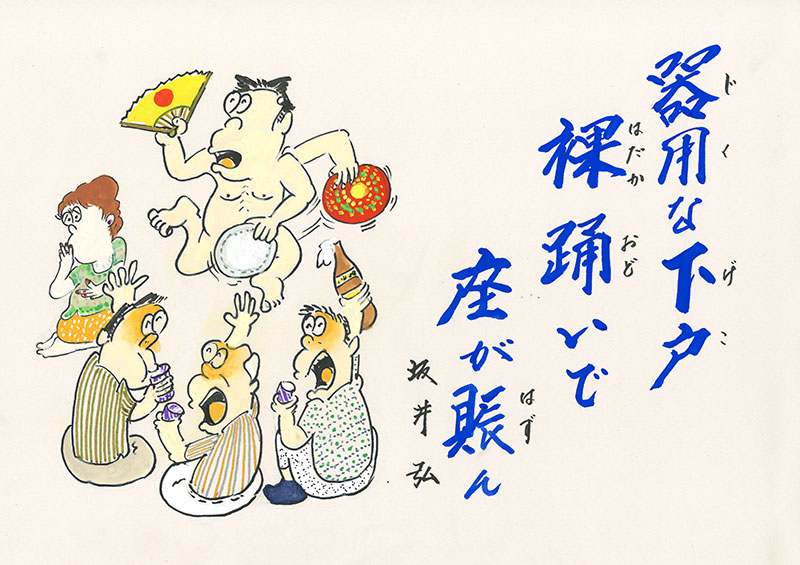 器用な下戸
じくげこ
裸踊いで
はだかおど
座が賑ん
はず
坂井弘